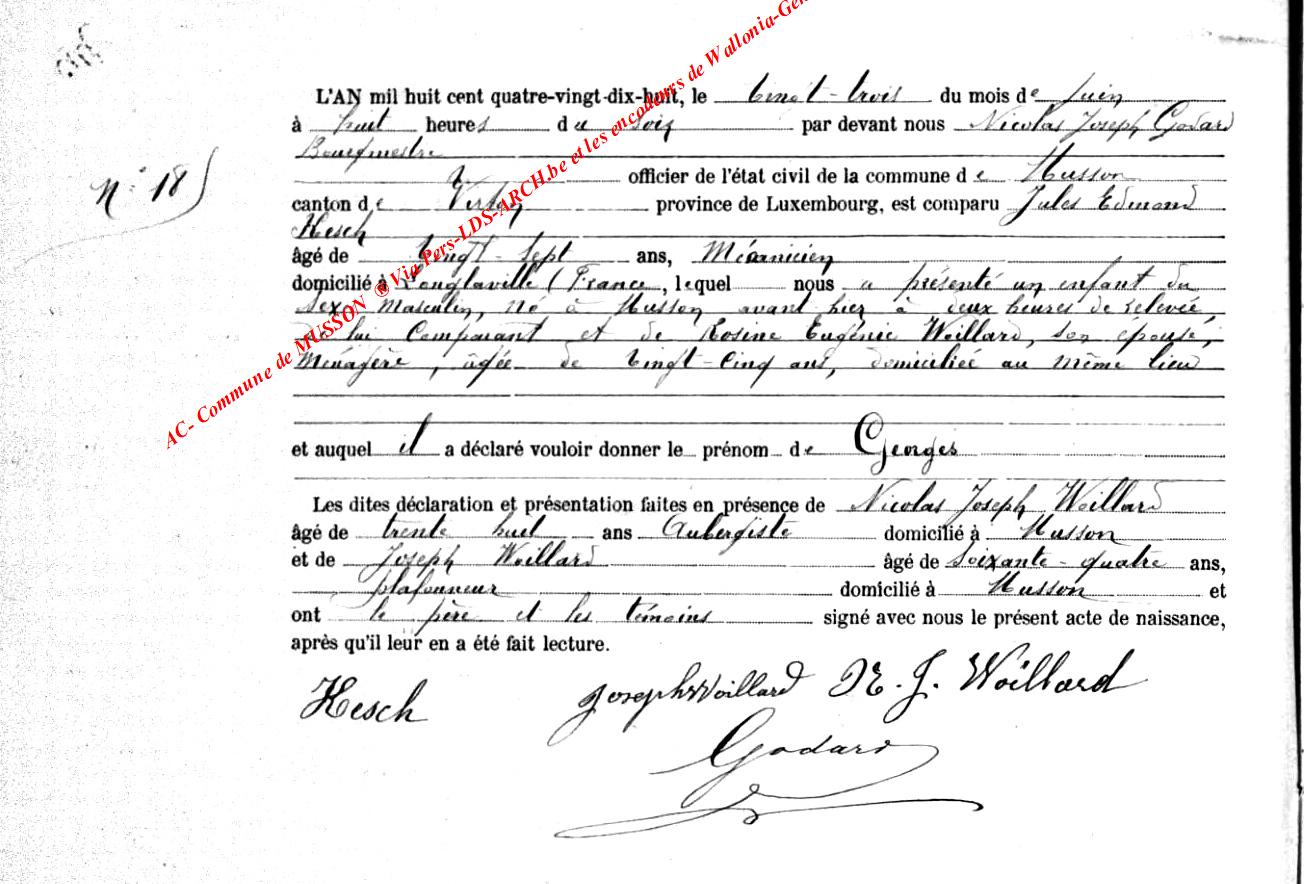 L'AN mil huit cent quatre-vingt-dix-huit, le Vingt-trois du mois de Juin
à huit heures du soir par devant nous Nicolas Joseph Godard
Bourgmestre
officier de l'état civil de la commune de Musson
canton de Virton province de Luxembourg, est comparu Jules Edmond
Hesch
âgé de Vingt-sept ans, Mécanicien
domicilié à Longlaville (France, lequel nous a présenté un enfant du
Sexe Masculin, né à Musson avant hier à deux heures de relevée,
de lui Comparant et de Rosine Eugénie Woillard, son épouse,
Ménagère, âgée de Vingt-Cinq ans, domiciliée au même lieu
et auquel il a déclaré vouloir donner le prénom de Georges
Les dites déclaration et présentation faites en présence de Nicolas Joseph Woillard
âgé de trente huit ans Aubergiste domicilié à Musson
et de Joseph Woillard âgé de Soixante-quatre ans,
plafonneur domicilié à Musson et
ont le père et les témoins signé avec nous le présent acte de naissance,
après qu'il leur en a été fait lecture.
Hesch Joseph Woillard N. J. Woillard
Godard
N° 18
AC- Commune de MUSSON ® Via Pers-LDS-ARCH.be et les encodeurs de Wallonia-Gen